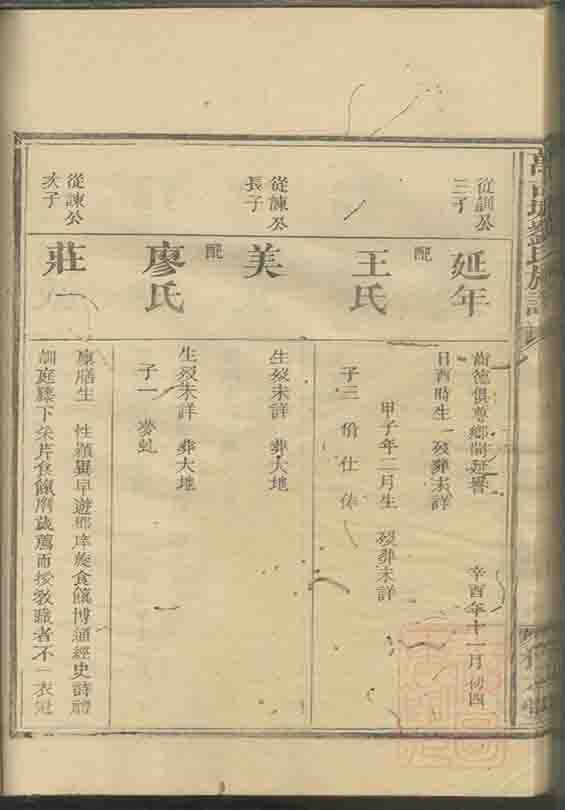 從訓公
三子
延年
齒德俱尊鄉閭 辛酉年十一月初四
日酉時生 歿葬未詳
配
王氏
甲子年二月生 歿葬未詳
子三 仕
從諫公
長子
美
生歿未詳 葬大地
配
廖氏
生歿未詳 葬大地
子一 麥虬
從諫公
次子
莊一
廩膳生 性穎異早遊郡庠旋食餼博通經史詩禮
訓庭 下采芹食餼 歲薦而授教職者不一衣冠